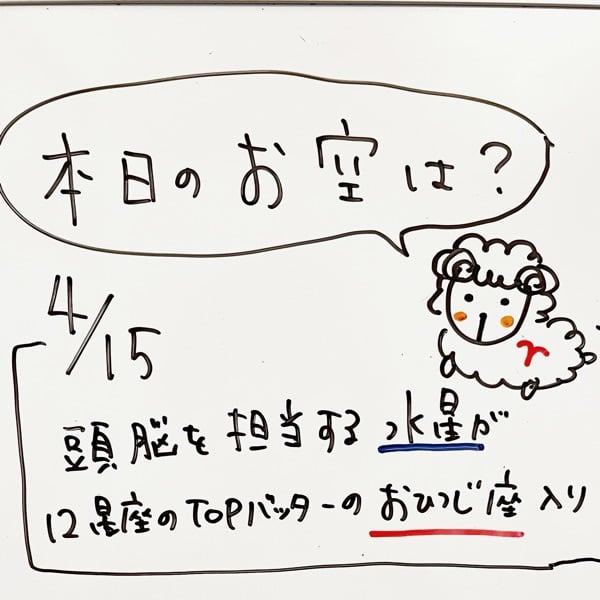 本日のお空は?
4/15
頭脳を担当する水星が
12星座のTOPバッターのおひつじ座入り
♈